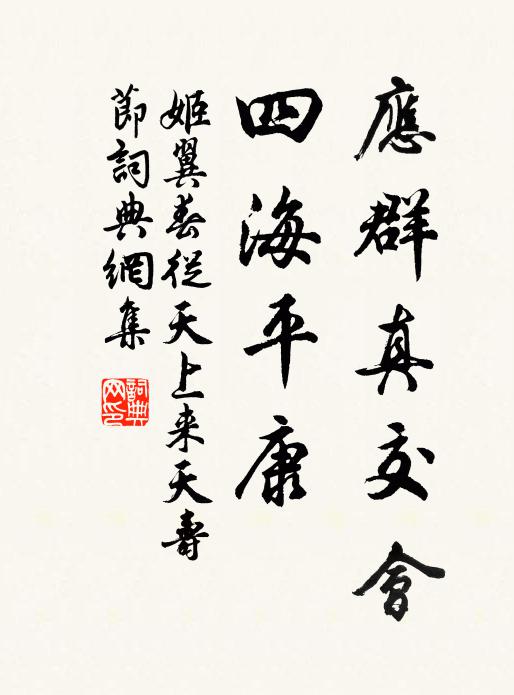 應群真交會
四海平康
姬翼春從天上来天壽
節詞典網集
詞典
网印